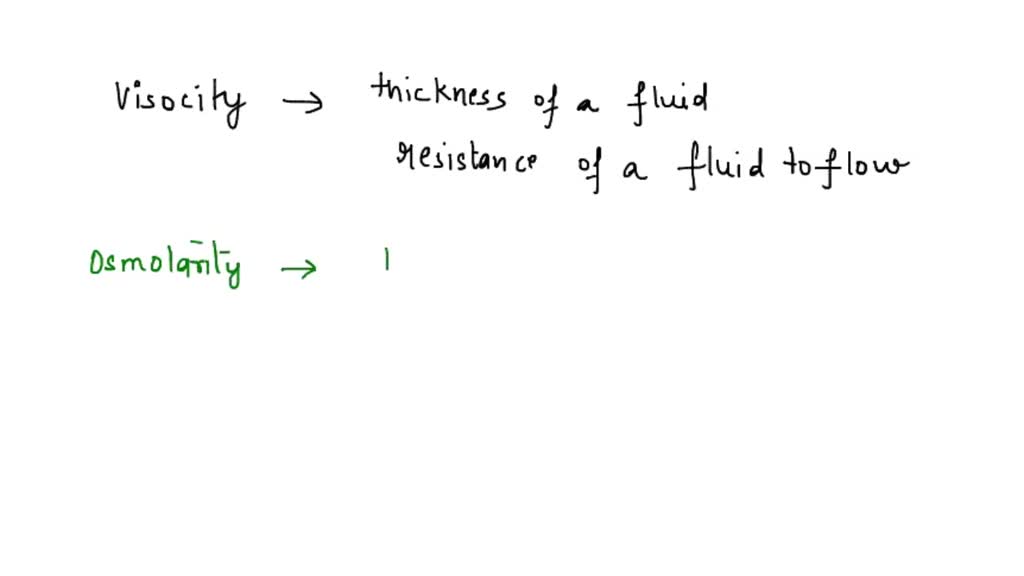 Visocity → thickness of a fluid
resistance of a fluid to flow
Osmolarity → I